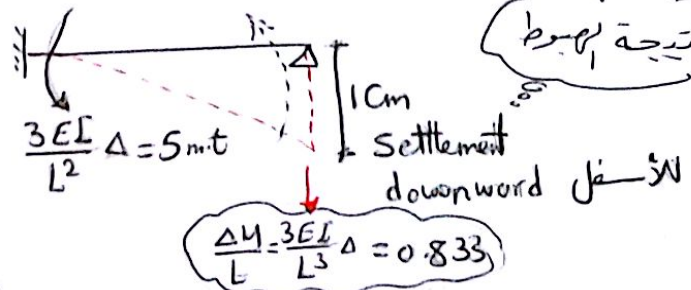 نتيجة الهبوط
1 Cm
3EI/L² Δ = 5 m.t
Settlement
downword للأسفل
ΔM/L = 3EI/L³ Δ = 0.833